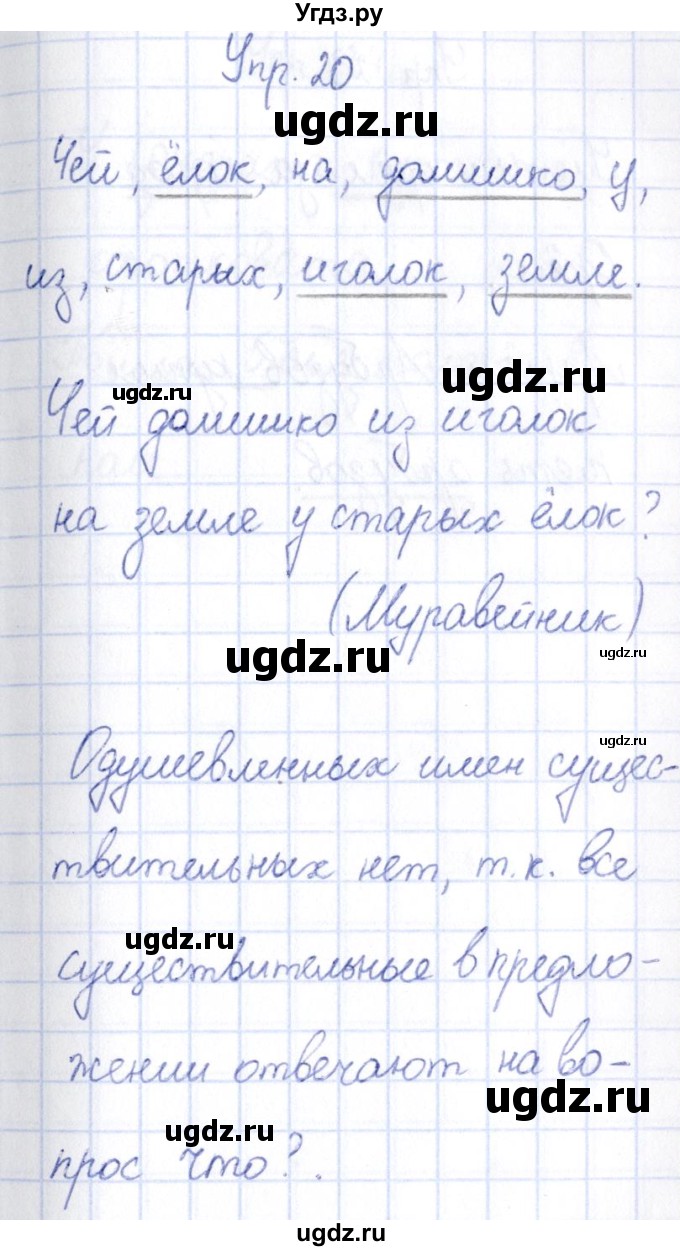 Угдз.ру
Упр. 20
ugdz.ru
Чей, ёлок, на, домишко, у,
из, старых, иголок, земле.
ugdz.ru
ugdz.ru
Чей домишко из иголок
на земле у старых ёлок?
(Муравейник)
ugdz.ru
ugdz.ru
ugdz.ru
Одушевленных имен сущес-
твительных нет, т.к. все
ugdz.ru
существительные в предло-
жении отвечают на во-
ugdz.ru
ugdz.ru
прос что?.
ugdz.ru